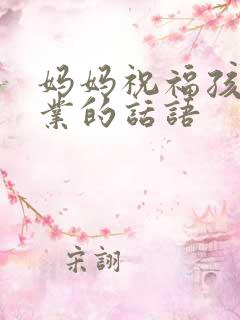 妈妈祝福孩
業的話語
宋翮